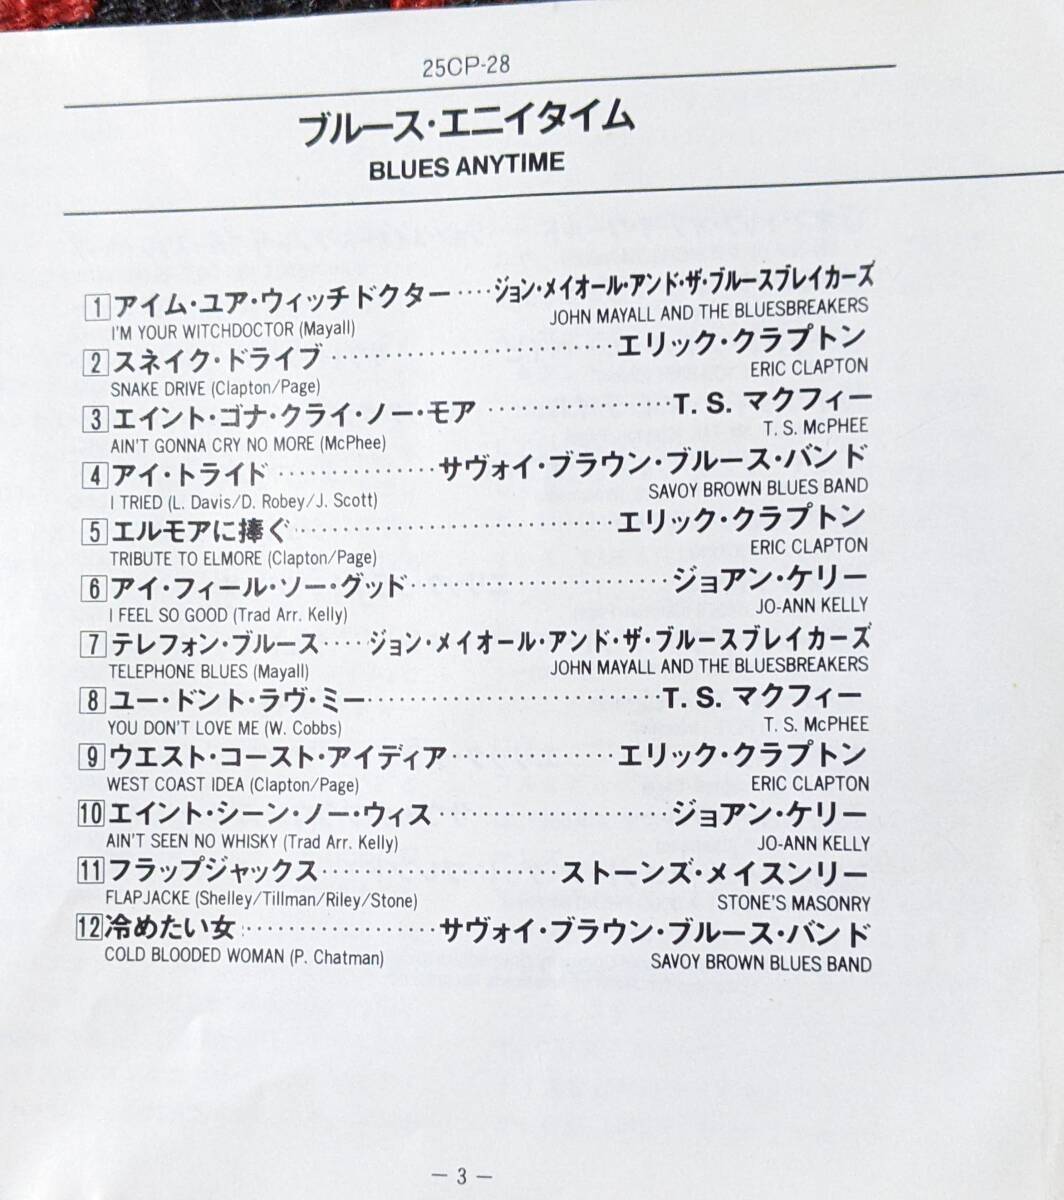 25CP-28
ブルース・エニイタイム
BLUES ANYTIME
1 アイム・ユア・ウィッチドクター‥‥ジョン・メイオール・アンド・ザ・ブルースブレイカーズ
I'M YOUR WITCHDOCTOR (Mayall) JOHN MAYALL AND THE BLUESBREAKERS
2 スネイク・ドライブ‥‥‥‥‥‥‥‥‥‥‥エリック・クラプトン
SNAKE DRIVE (Clapton/Page) ERIC CLAPTON
3 エイント・ゴナ・クライ・ノー・モア‥‥‥‥‥‥‥T. S. マクフィー
AIN'T GONNA CRY NO MORE (McPhee) T. S. McPHEE
4 アイ・トライド‥‥‥‥‥‥サヴォイ・ブラウン・ブルース・バンド
I TRIED (L. Davis/D. Robey/J. Scott) SAVOY BROWN BLUES BAND
5 エルモアに捧ぐ‥‥‥‥‥‥‥‥‥‥‥‥エリック・クラプトン
TRIBUTE TO ELMORE (Clapton/Page) ERIC CLAPTON
6 アイ・フィール・ソー・グッド‥‥‥‥‥‥‥‥‥‥ジョアン・ケリー
I FEEL SO GOOD (Trad Arr. Kelly) JO-ANN KELLY
7 テレフォン・ブルース‥‥ジョン・メイオール・アンド・ザ・ブルースブレイカーズ
TELEPHONE BLUES (Mayall) JOHN MAYALL AND THE BLUESBREAKERS
8 ユー・ドント・ラヴ・ミー‥‥‥‥‥‥‥‥‥‥‥T. S. マクフィー
YOU DON'T LOVE ME (W. Cobbs) T. S. McPHEE
9 ウエスト・コースト・アイディア‥‥‥‥‥‥エリック・クラプトン
WEST COAST IDEA (Clapton/Page) ERIC CLAPTON
10 エイント・シーン・ノー・ウィス‥‥‥‥‥‥‥‥‥ジョアン・ケリー
AIN'T SEEN NO WHISKY (Trad Arr. Kelly) JO-ANN KELLY
11 フラップジャックス‥‥‥‥‥‥‥‥‥ストーンズ・メイスンリー
FLAPJACKE (Shelley/Tillman/Riley/Stone) STONE'S MASONRY
12 冷めたい女‥‥‥‥‥‥‥サヴォイ・ブラウン・ブルース・バンド
COLD BLOODED WOMAN (P. Chatman) SAVOY BROWN BLUES BAND
— 3 —